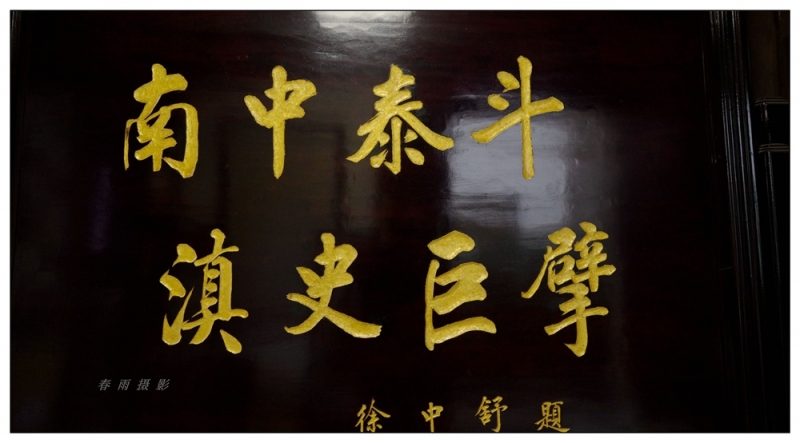 南中泰斗
滇史巨擘
春雨摄影
徐中舒题